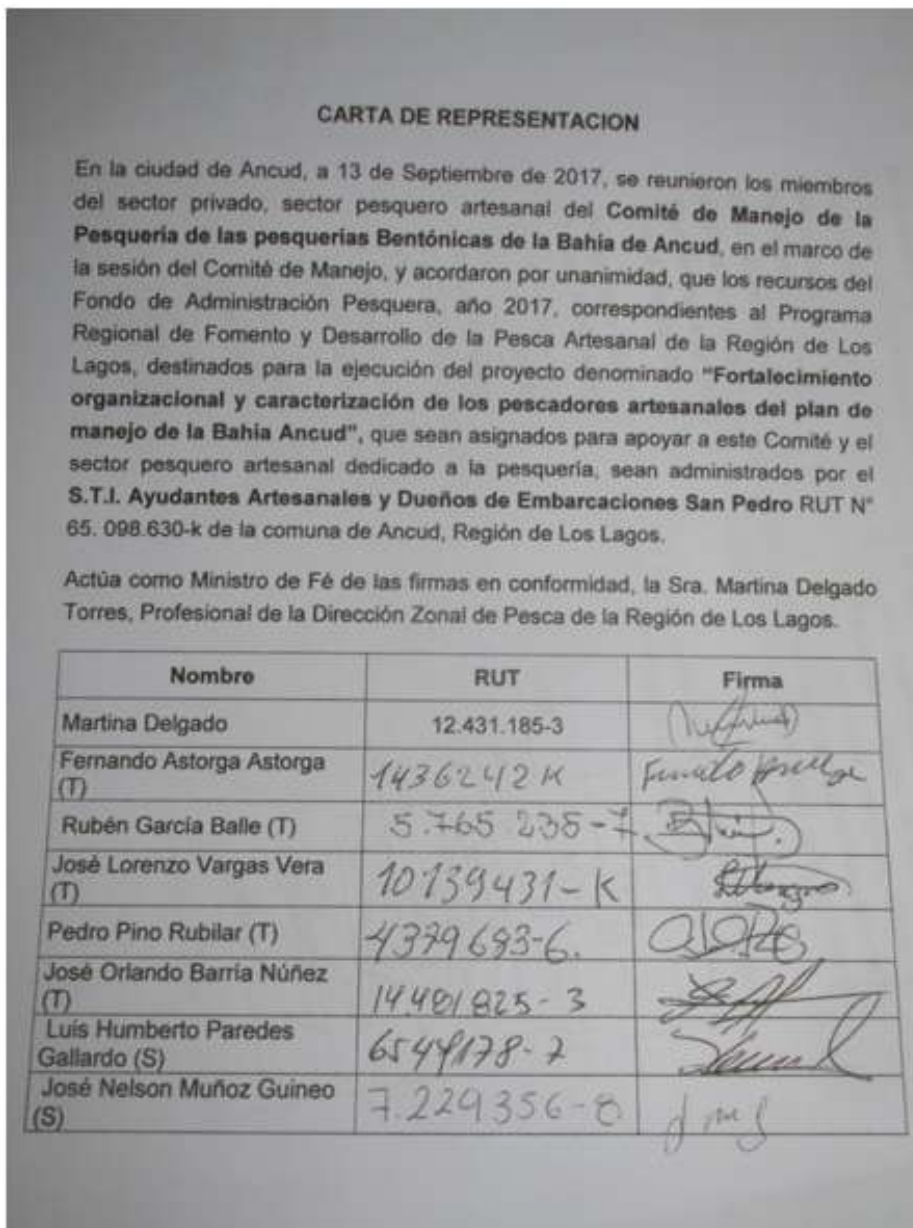 CARTA DE REPRESENTACION
En la ciudad de Ancud, a 13 de Septiembre de 2017, se reunieron los miembros
del sector privado, sector pesquero artesanal del Comité de Manejo de la
Pesquería de las pesquerías Bentónicas de la Bahía de Ancud, en el marco de
la sesión del Comité de Manejo, y acordaron por unanimidad, que los recursos del
Fondo de Administración Pesquera, año 2017, correspondientes al Programa
Regional de Fomento y Desarrollo de la Pesca Artesanal de la Región de Los
Lagos, destinados para la ejecución del proyecto denominado "Fortalecimiento
organizacional y caracterización de los pescadores artesanales del plan de
manejo de la Bahía Ancud", que sean asignados para apoyar a este Comité y el
sector pesquero artesanal dedicado a la pesquería, sean administrados por el
S.T.I. Ayudantes Artesanales y Dueños de Embarcaciones San Pedro RUT N°
65. 098.630-k de la comuna de Ancud, Región de Los Lagos.
Actúa como Ministro de Fé de las firmas en conformidad, la Sra. Martina Delgado
Torres, Profesional de la Dirección Zonal de Pesca de la Región de Los Lagos.
Nombre RUT Firma
Martina Delgado 12.431.185-3
Fernando Astorga Astorga
(T) 1436242 K
Rubén García Balle (T) 5.765 235-7
José Lorenzo Vargas Vera
(T) 10139431-K
Pedro Pino Rubilar (T) 4379693-6.
José Orlando Barría Núñez
(T) 14.481825-3
Luis Humberto Paredes
Gallardo (S) 6544178-7
José Nelson Muñoz Guineo
(S) 7.229356-8